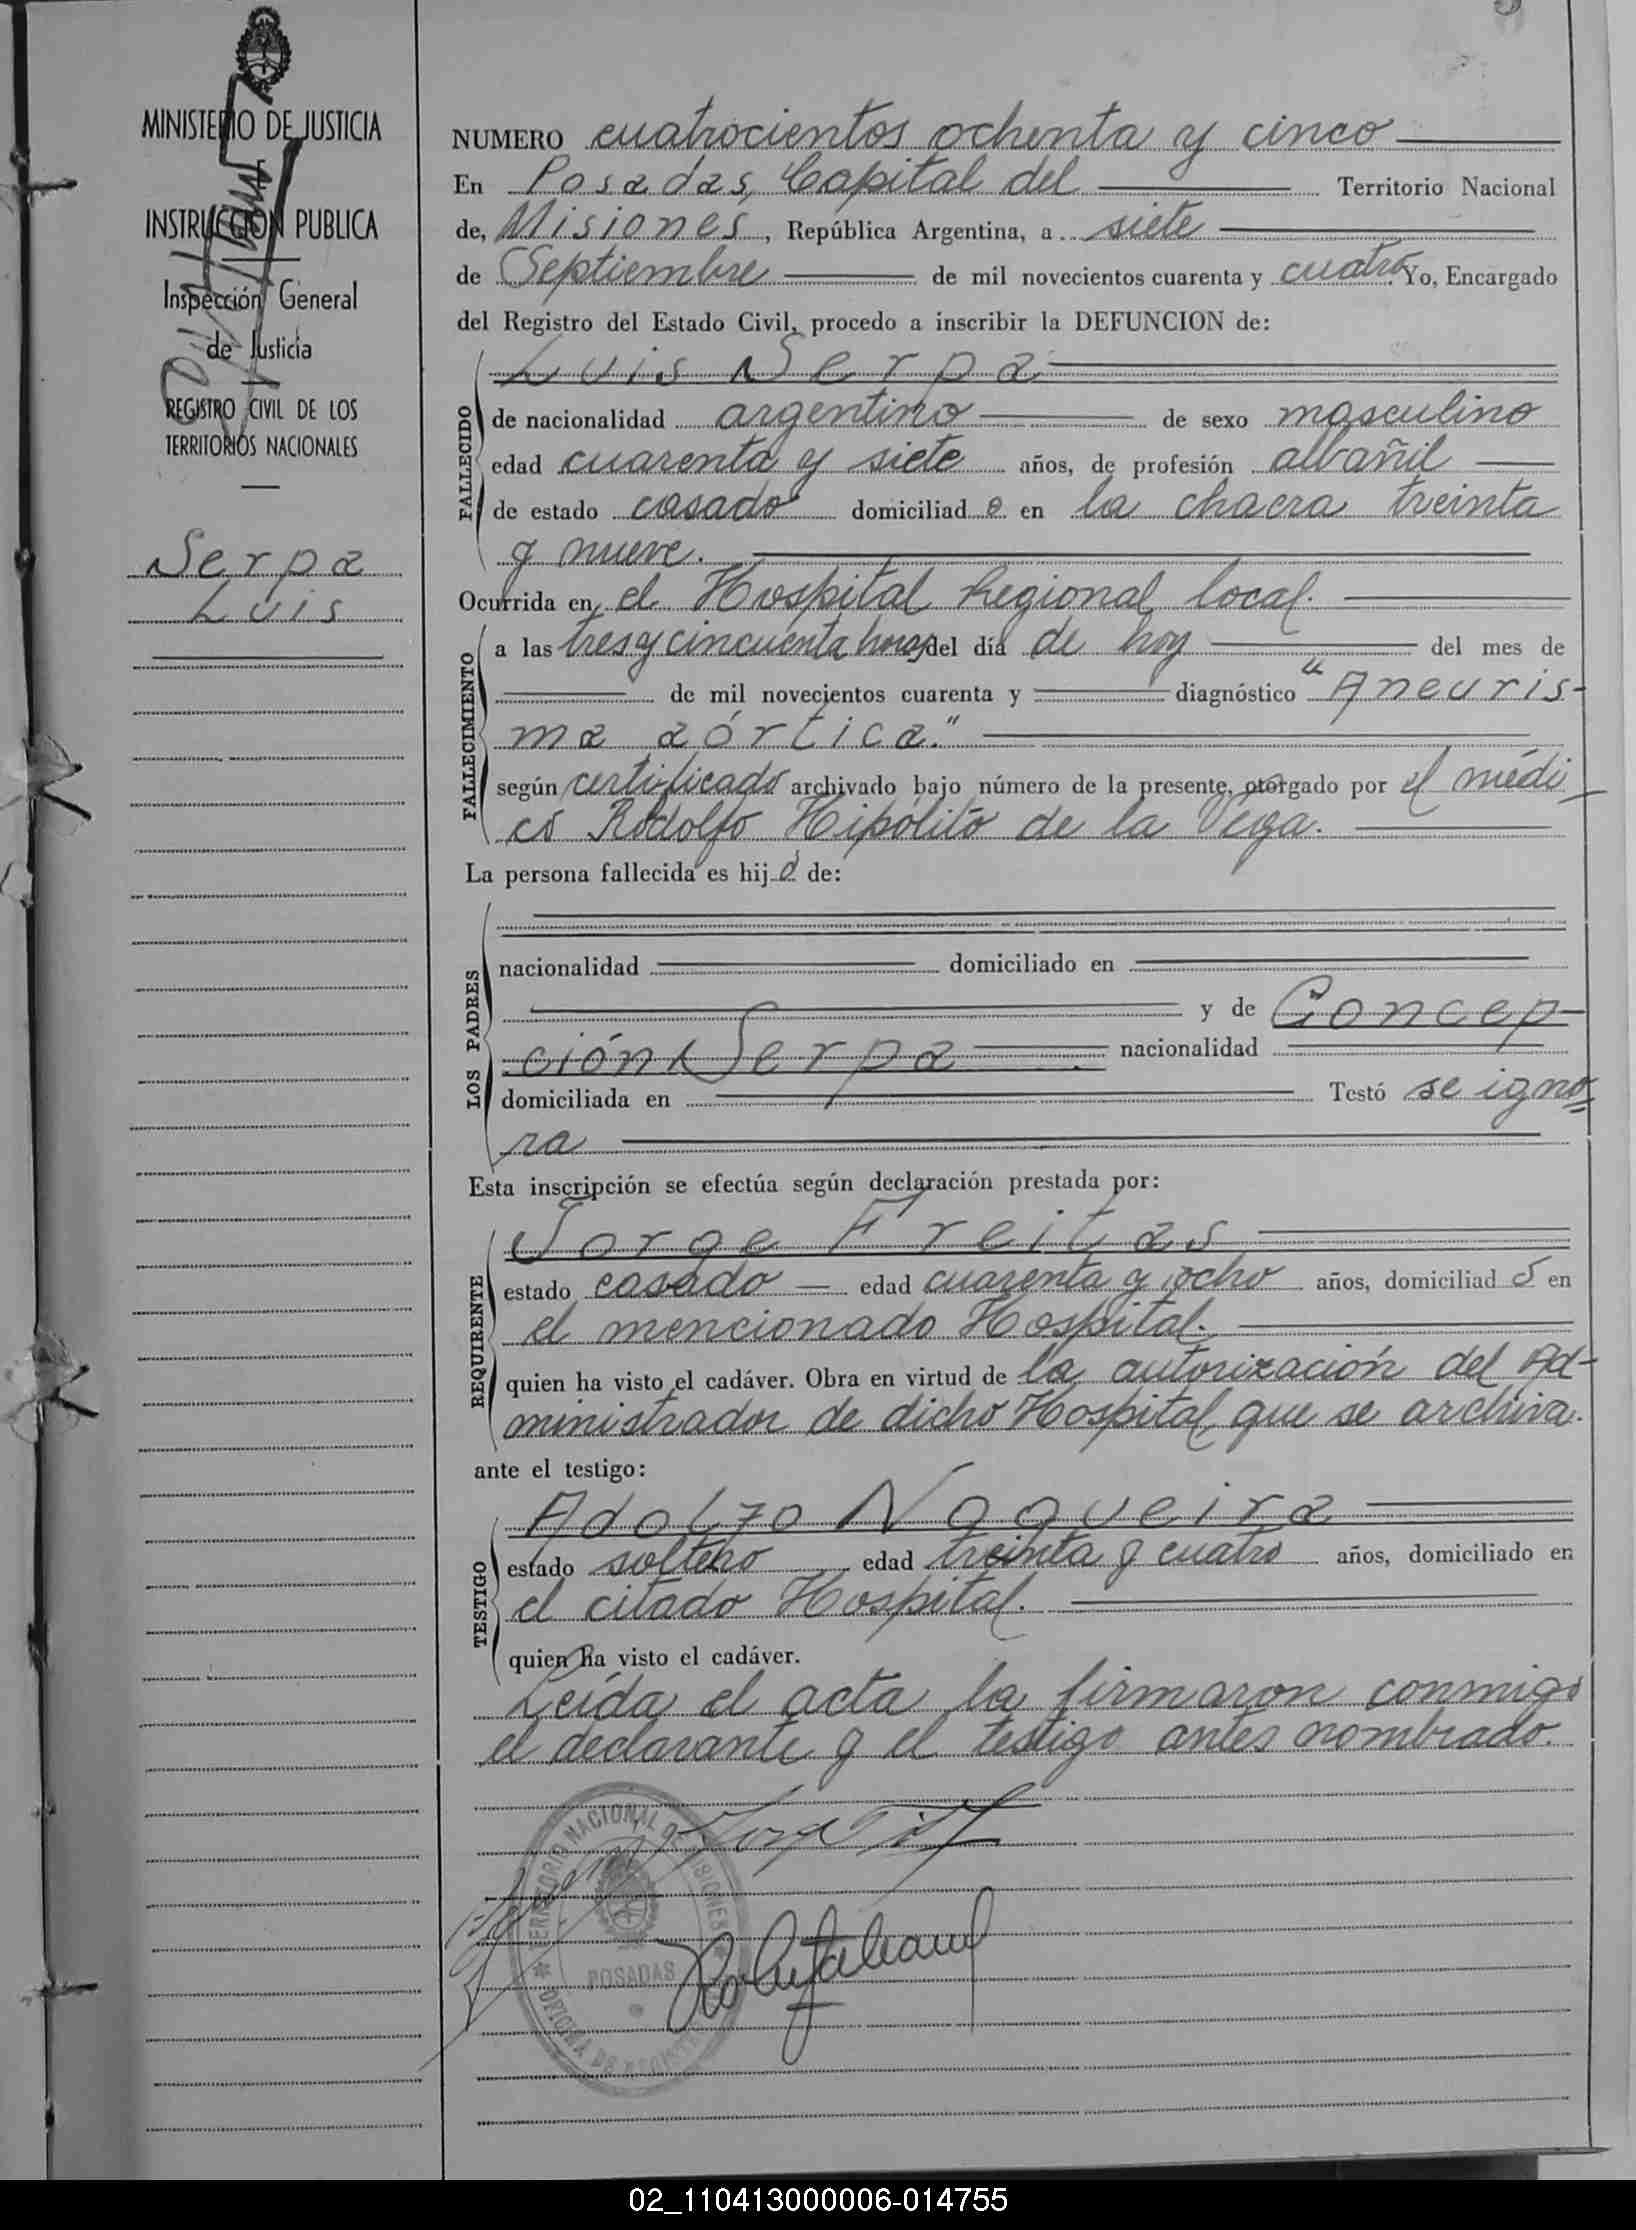 MINISTERIO DE JUSTICIA
E
INSTRUCCION PUBLICA
Inspección General
de Justicia
REGISTRO CIVIL DE LOS
TERRITORIOS NACIONALES
Serpa
Luis
NUMERO cuatrocientos ochenta y cinco
En Posadas, Capital del Territorio Nacional
de, Misiones, República Argentina, a siete
de Septiembre de mil novecientos cuarenta y cuatro. Yo, Encargado
del Registro del Estado Civil, procedo a inscribir la DEFUNCION de:
FALLECIDO
Luis Serpa
de nacionalidad argentino de sexo masculino
edad cuarenta y siete años, de profesión albañil
de estado casado domiciliado en la chacra treinta
y nueve.
Ocurrida en el Hospital Regional local.
FALLECIMIENTO
a las tres y cincuenta horas del día de hoy del mes de
de mil novecientos cuarenta y diagnóstico "Aneuris-
ma aórtica."
según certificado archivado bajo número de la presente, otorgado por el médi-
co Rodolfo Hipólito de la Vega.
La persona fallecida es hijo de:
LOS PADRES
nacionalidad domiciliado en
y de Concep-
ción Serpa nacionalidad
domiciliada en Testó se igno-
ra
Esta inscripción se efectúa según declaración prestada por:
REQUIRENTE
Jorge Freitas
estado casado edad cuarenta y ocho años, domiciliado en
el mencionado Hospital.
quien ha visto el cadáver. Obra en virtud de la autorización del Ad-
ministrador de dicho Hospital que se archiva.
ante el testigo:
TESTIGO
Adolfo Nogueira
estado soltero edad treinta y cuatro años, domiciliado en
el citado Hospital.
quien ha visto el cadáver.
Leída el acta la firmaron conmigo
el declarante y el testigo antes nombrado.
TERRITORIO NACIONAL DE MISIONES
POSADAS
02_110413000006-014755